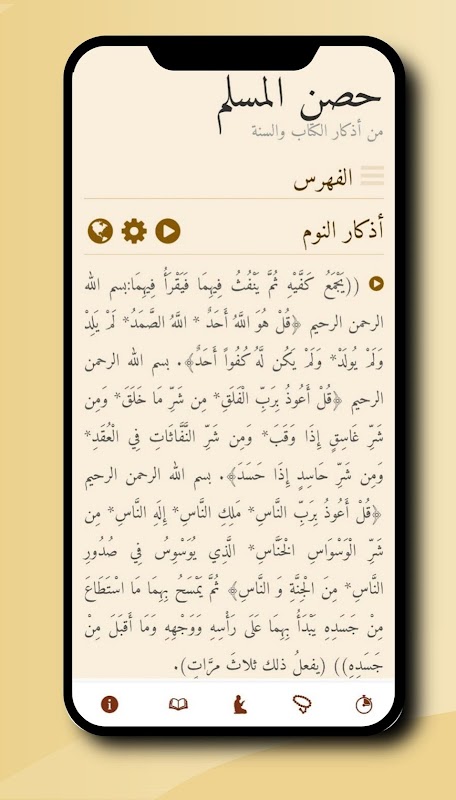 حصن المسلم
من أذكار الكتاب والسنة
الفهرس
أذكار النوم
((يَجْمَعُ كَفَّيْهِ ثُمَّ يَنْفُثُ فِيهِمَا فَيَقْرَأُ فِيهِمَا:بسم الله
الرحمن الرحيم ﴿قُلْ هُوَ اللَّهُ أَحَدٌ* اللَّهُ الصَّمَدُ* لَمْ يَلِدْ
وَلَمْ يُولَدْ* وَلَمْ يَكُن لَّهُ كُفُواً أَحَدٌ﴾. بسم الله الرحمن
الرحيم ﴿قُلْ أَعُوذُ بِرَبِّ الْفَلَقِ* مِن شَرِّ مَا خَلَقَ* وَمِن
شَرِّ غَاسِقٍ إِذَا وَقَبَ* وَمِن شَرِّ النَّفَّاثَاتِ فِي الْعُقَدِ*
وَمِن شَرِّ حَاسِدٍ إِذَا حَسَدَ﴾. بسم الله الرحمن الرحيم
﴿قُلْ أَعُوذُ بِرَبِّ النَّاسِ* مَلِكِ النَّاسِ* إِلَهِ النَّاسِ* مِن
شَرِّ الْوَسْوَاسِ الْخَنَّاسِ* الَّذِي يُوَسْوِسُ فِي صُدُورِ
النَّاسِ* مِنَ الْجِنَّةِ وَ النَّاسِ﴾ ثُمَّ يَمْسَحُ بِهِمَا مَا اسْتَطَاعَ
مِنْ جَسَدِهِ يَبْدَأُ بِهِمَا عَلَى رَأْسِهِ وَوَجْهِهِ وَمَا أَقْبَلَ مِنْ
جَسَدِهِ)) (يفعلُ ذلك ثلاثَ مرَّاتٍ).